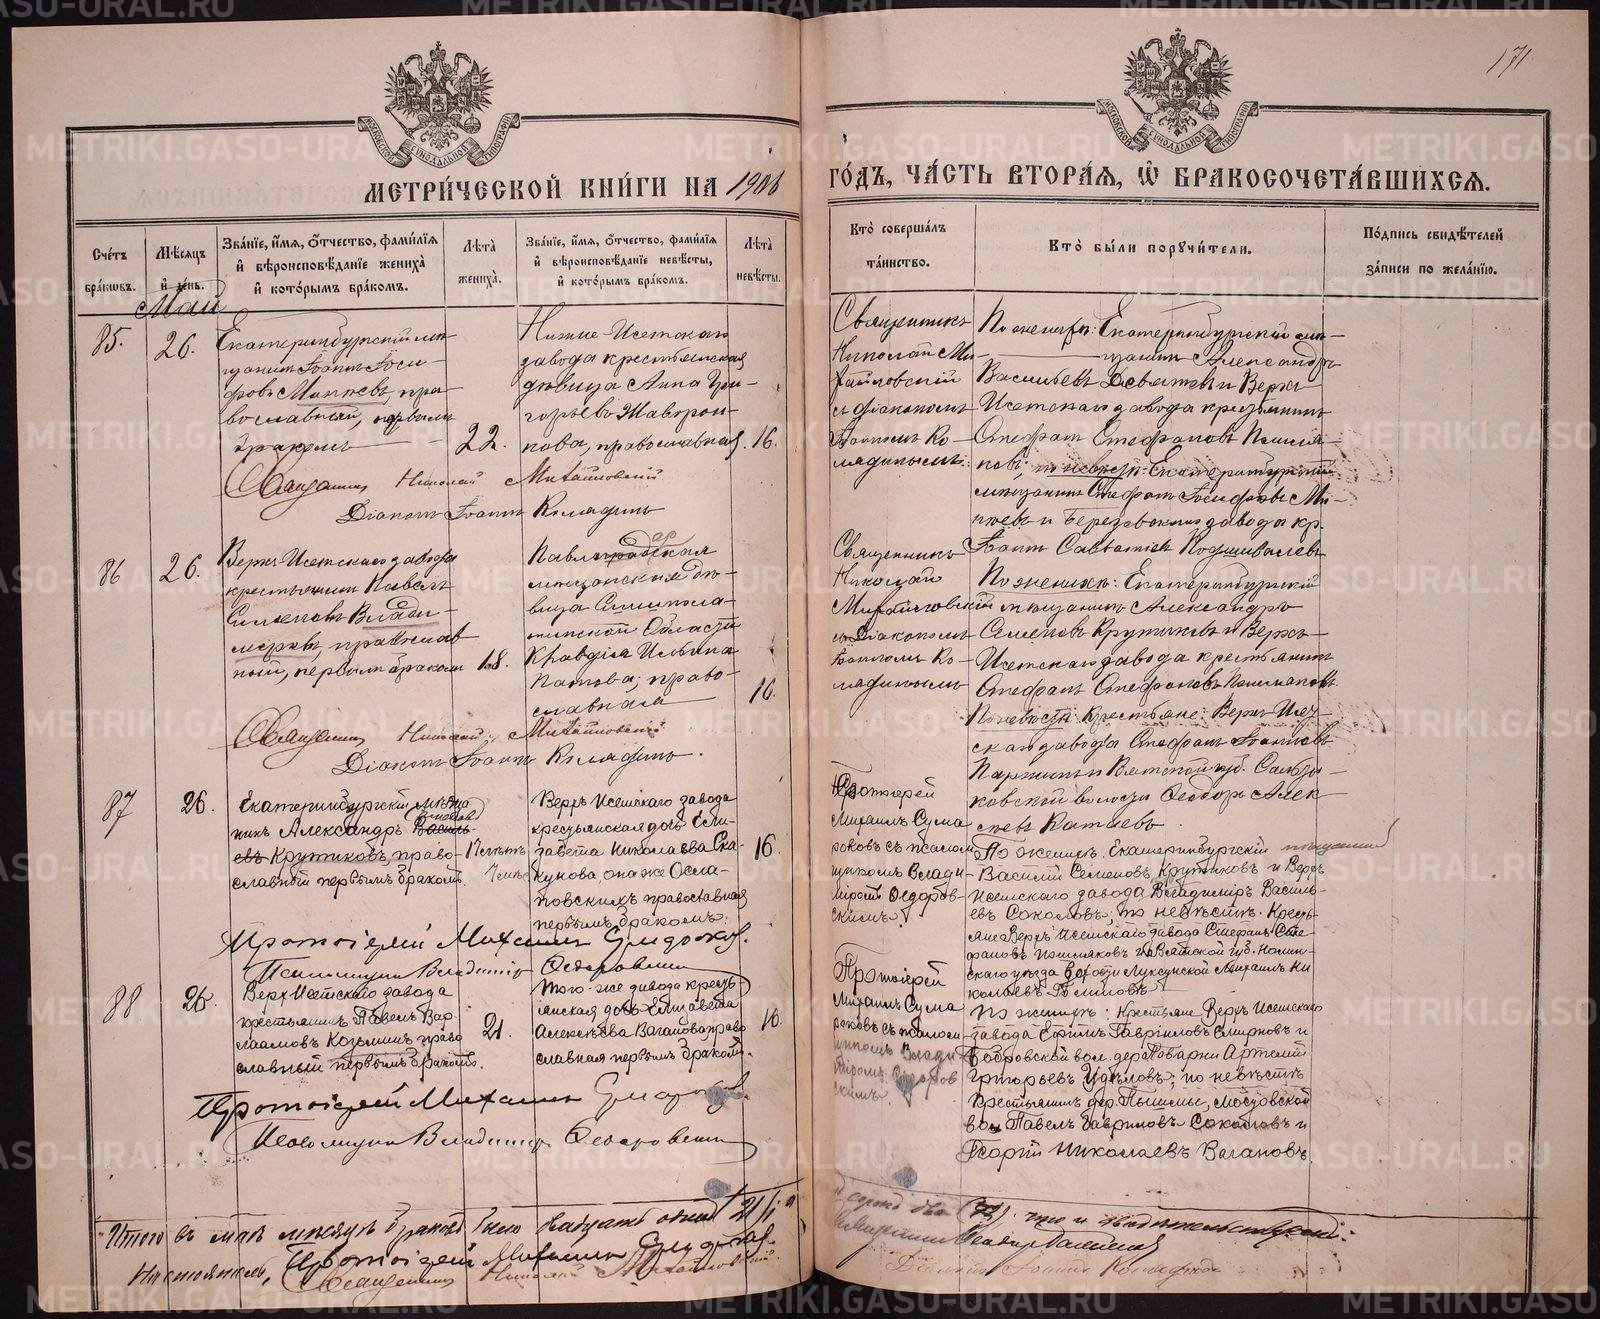 171
МЕТРИ́ЧЕСКОЙ КНИ́ГИ НА 1906
ГО́ДЪ, ЧА́СТЬ ВТОРА́Я, Ѡ БРАКОСОЧЕТА́ВШИХСЯ.
Сче́тъ бра́ковъ.
Мѣ́сяцъ и де́нь.
Зва́ніе, и́мя, о́тчество, фами́лія и вѣроисповѣ́даніе жениха̀ и кото́рымъ бра́комъ.
Лѣ́та жениха̀.
Зва́ніе, и́мя, о́тчество, фами́лія и вѣроисповѣ́даніе невѣ́сты, и кото́рымъ бра́комъ.
Лѣ́та невѣ́сты.
Кто̀ соверша́лъ та́инство.
Кто̀ бы́ли поручи́тели.
По́дпись свидѣ́телей за́писи по жела́нію.
Май
85.
26.
Екатеринбургскій мѣ-
щанинъ Іоаннъ Іоси-
фовъ Минѣевъ, пра-
вославный, первымъ
бракомъ
22.
Нижне-Исетскаго
завода крестьянская
дѣвица Анна Гри-
горьева Жаворон-
кова, православная.
16.
Священникъ
Николай Ми-
хайловскій
съ діакономъ
Іоанномъ Ко-
лядинымъ.
По женихѣ: Екатеринбургскій мѣ-
щанинъ Александръ
Васильевъ Девятовъ и Верхъ-
Исетскаго завода крестьянинъ
Стефанъ Стефановъ
по невѣстѣ: Екатеринбургскій
мѣщанинъ Стефанъ Іосифовъ Ми-
нѣевъ и Березовскаго завода кр.
Іоаннъ Савватіевъ Подшиваловъ
Священникъ Николай Михайловскій
Діаконъ Іоаннъ Колядинъ
86
26.
Верхъ-Исетскаго завода
крестьянинъ Павелъ
Симеоновъ Влади-
меровъ, православ
ный, первымъ бракомъ
18.
Павлодарская
мѣщанская дѣ-
вица Семипола-
тинской Области
Клавдія Ильина
православная
16.
Священникъ
Николай
Михайловскій
съ Діакономъ
Іоанномъ Ко-
лядинымъ
По женихѣ: Екатеринбургскій
мѣщанинъ Александръ
Семеновъ Крутиковъ и Верхъ-
Исетскаго завода крестьянинъ
Стефанъ Стефановъ
По невѣстѣ: крестьяне: Верхъ-Исет-
скаго завода Стефанъ Іоанновъ
и Вятской губ.
волости Ѳеодоръ Алек-
Священникъ Николай Михайловскій
Діаконъ Іоаннъ Колядинъ.
87
26.
Екатеринбургскій мѣща
никъ Александръ Василь-
евъ Крутиковъ, право-
славный первымъ бракомъ.
17 лѣтъ
7 мѣс
Верхъ Исетскаго завода
крестьянская дочь Ели-
завета Николаева Ска-
кунова, она же Осла-
повскихъ православная
первымъ бракомъ.
16.
Протоіерей
Михаилъ Сума
роковъ съ псалом
щикомъ Влади
міромъ Ѳедоров-
скимъ.
По женихѣ. Екатеринбургскій мѣщанинъ
Василій Семеновъ Крутиковъ и Верхъ
Исетскаго завода Владиміръ Василь-
евъ Соколовъ; по невѣстѣ. Кресть-
яне Верхъ Исетскаго завода Стефанъ Сте
фановъ и Вятской губ. Нолин-
скаго уѣзда Михаилъ Ни
колаевъ
Протоіерей Михаилъ Сумароковъ.
Псаломщикъ Владиміръ Ѳедоровскій
88
26
Верх Исетскаго завода
крестьянинъ Павелъ Вар
лаамовъ Козьминъ право
славный первымъ бракомъ.
21.
Того-же завода кресть
янская дочь Елизавета
Алексѣева Ваганова право
славная первымъ бракомъ.
Протоіерей
Михаилъ Сума
роковъ съ псалом
щикомъ Влади
міромъ Ѳедоров
скимъ.
По женихѣ: Крестьяне Верхъ Исетскаго
завода Ефимъ Гавріиловъ Смирновъ и
Бобровской вол. дер. Поварни Артемій
Григорьевъ Удѣловъ; по невѣстѣ
Крестьянинъ дер. Пышмы, Мостовской
вол. Павелъ Гавриловъ Соколовъ и
Георгій Николаевъ Вагановъ.
Протоіерей Михаилъ Сумароковъ.
Псаломщикъ Владиміръ Ѳедоровскій
Итого въ маѣ мѣсяцѣ браковъ было двадцать одинъ /21/
что и свидѣтельствуемъ:
Настоятель, Протоіерей Михаилъ Сумароковъ.
Священникъ Николай Михайловскій.
Діаконъ Іоаннъ Колядинъ
METRIKI.GASO-URAL.RU